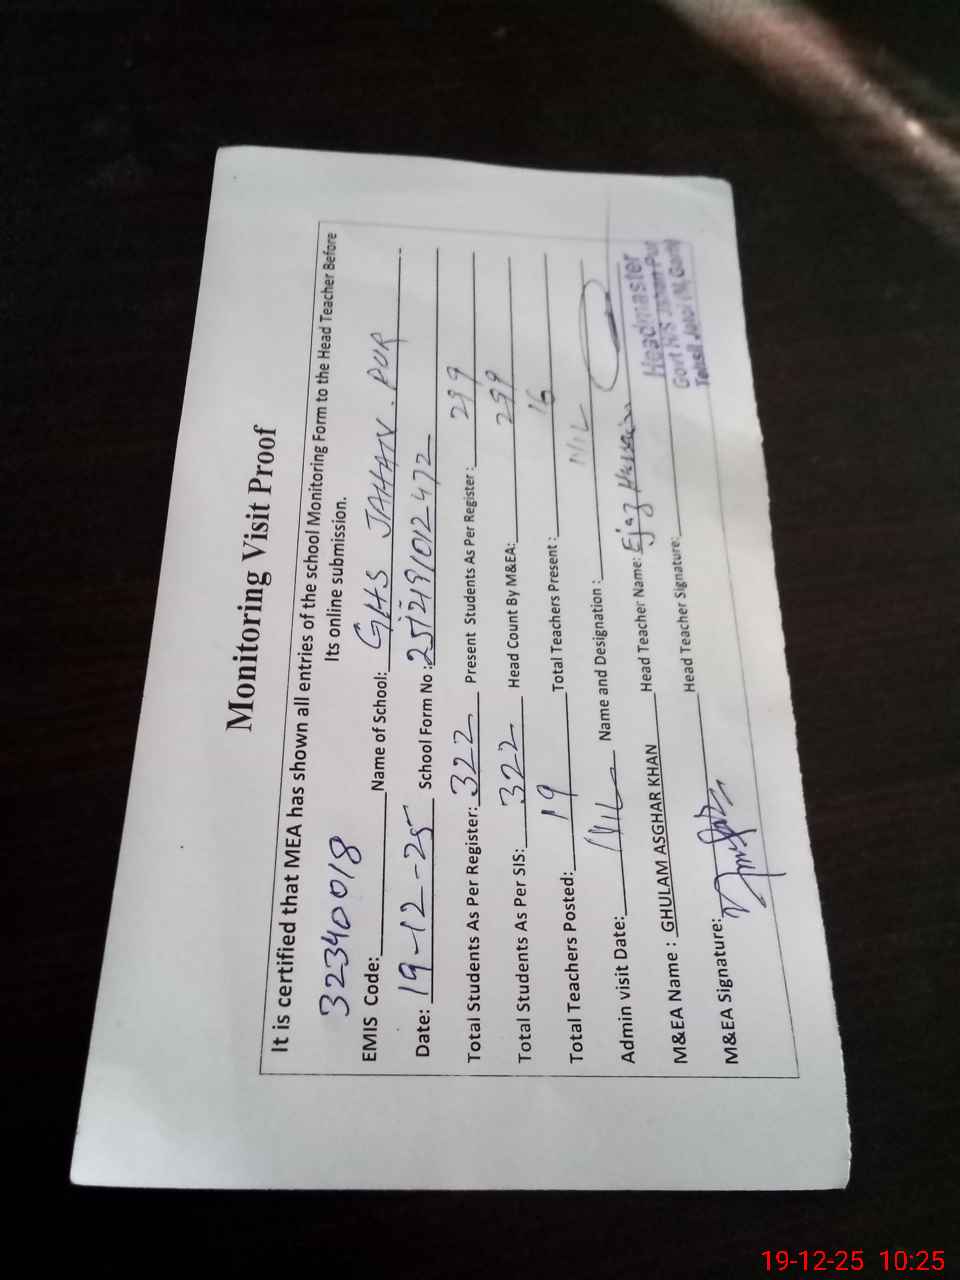 Monitoring Visit Proof
It is certified that MEA has shown all entries of the school Monitoring Form to the Head Teacher Before
Its online submission.
EMIS Code: 32340018 Name of School: GHS JAHAN. PUR
Date: 19-12-25 School Form No: 2512191012472
Total Students As Per Register: 322 Present Students As Per Register: 299
Total Students As Per SIS: 322 Head Count By M&EA: 299
Total Teachers Posted: 19 Total Teachers Present: 16
Admin visit Date: NIL Name and Designation: NIL
M&EA Name: GHULAM ASGHAR KHAN Head Teacher Name: Ejaz Hussain
M&EA Signature: Head Teacher Signature:
Headmaster
Govt H/S Jahan Pur
Tehsil Jatoi (M.Garh)
19-12-25 10:25